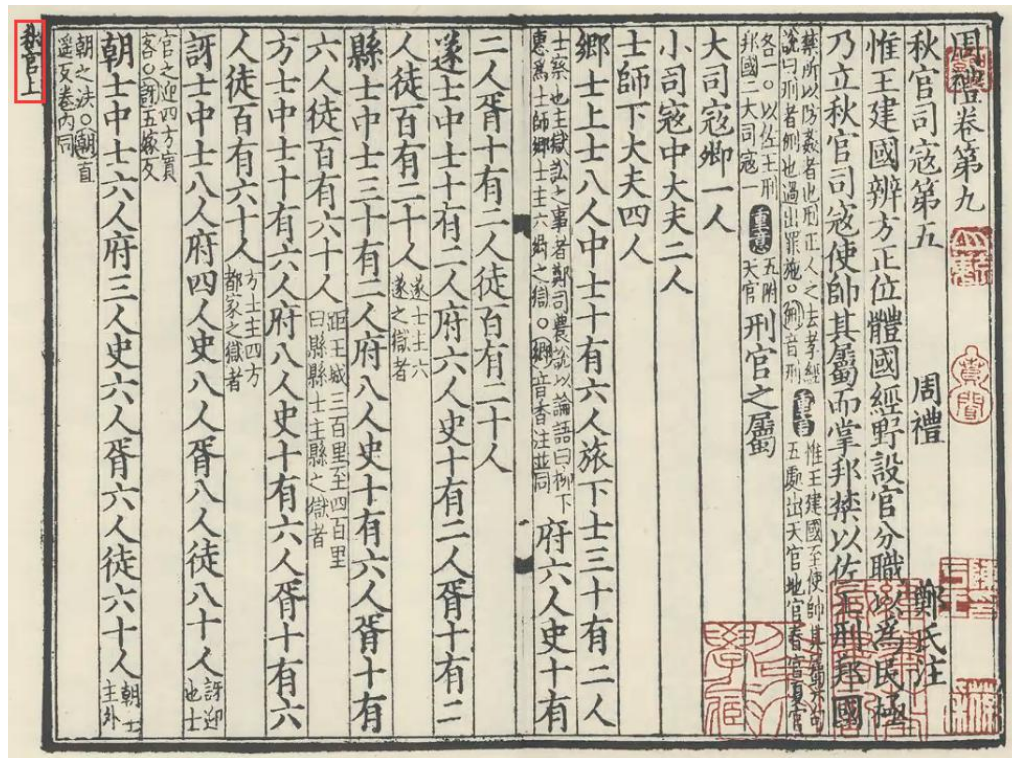 周禮卷第九
秋官司寇第五 周禮 鄭氏注
惟王建國辨方正位體國經野設官分職以爲民極
乃立秋官司寇使帥其屬而掌邦禁以佐王刑邦國
禁所以防姦者也刑正人之法孝經
說曰刑者侀也過出罪施〇刑音刑
重言
惟王建國至使帥其屬六句
五處出天官地官春官夏官
各一〇以佐王刑
邦國二大司寇一
重意
五附
天官
刑官之屬
大司寇卿一人
小司寇中大夫二人
士師下大夫四人
鄉士上士八人中士十有六人旅下士三十有二人
士察也主獄訟之事者鄭司農說以論語曰柳下
惠爲士師鄉士主六鄉之獄〇鄉音香注並同
府六人史十有
二人胥十有二人徒百有二十人
遂士中士十有二人府六人史十有二人胥十有二
人徒百有二十人
遂士主六
遂之獄者
縣士中士三十有二人府八人史十有六人胥十有
六人徒百有六十人
距王城三百里至四百里
曰縣縣士主縣之獄者
方士中士十有六人府八人史十有六人胥十有六
人徒百有六十人
方士主四方
都家之獄者
訝士中士八人府四人史八人胥八人徒八十人
訝迎
也士
官之迎四方賓
客〇訝五嫁反
朝士中士六人府三人史六人胥六人徒六十人
朝士
主外
朝之法〇朝直
遥反卷内同
秋官上